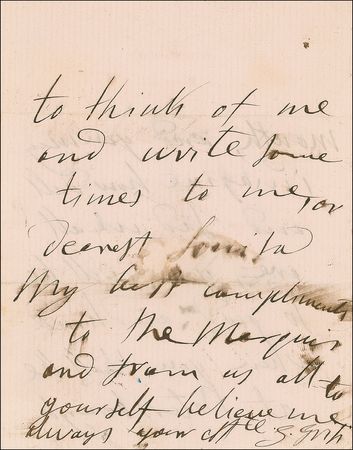 to think of me
and write some
times to me, or
dearest
My best compliments
to the Marquis
and from us all to
yourself believe me
always your